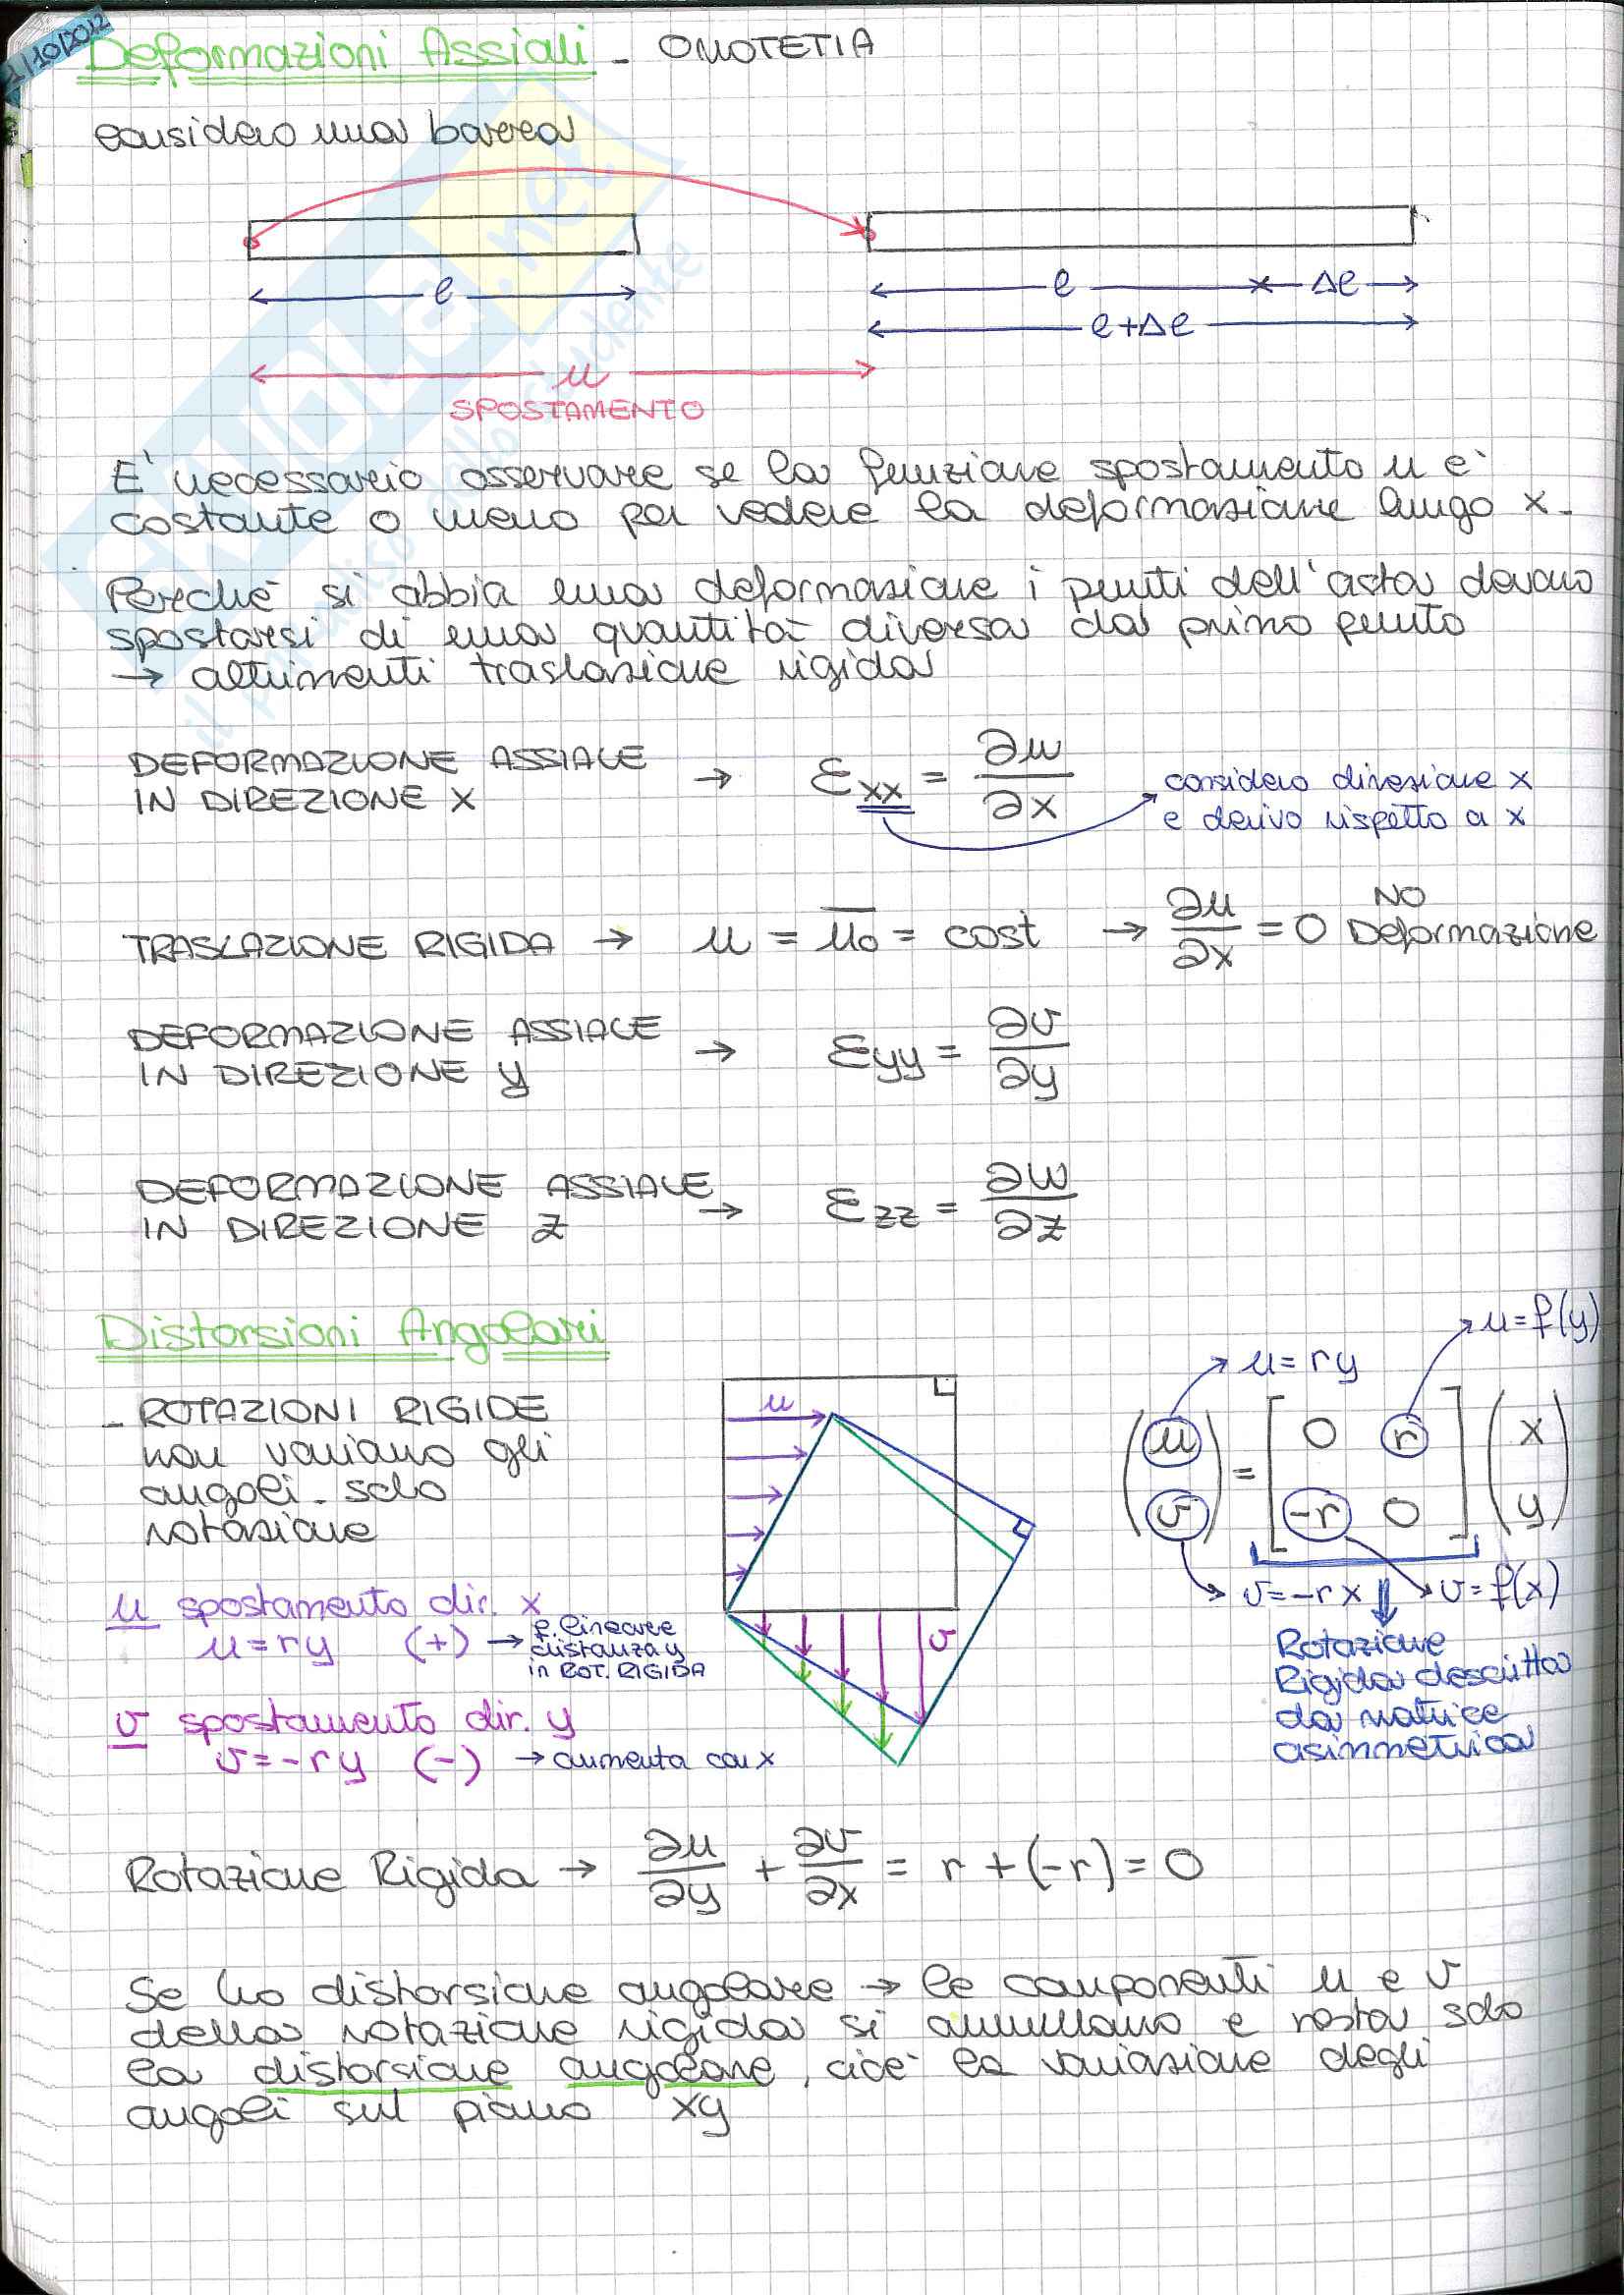 1/10/2012
Deformazioni Assiali - OMOTETIA
considero una barra
l
l Δl
l+Δl
u
SPOSTAMENTO
E' necessario osservare se la funzione spostamento u e'
costante o meno per vedere la deformazione lungo x.
Perche' si abbia una deformazione i punti dell'asta devono
spostarsi di una quantità diversa dal primo punto
→ altrimenti traslazione rigida
DEFORMAZIONE ASSIALE
IN DIREZIONE X → εxx = ∂u/∂x
considero direzione x
e derivo rispetto a x
TRASLAZIONE RIGIDA → u = u₀ = cost → ∂u/∂x = 0 NO Deformazione
DEFORMAZIONE ASSIALE
IN DIREZIONE y → εyy = ∂v/∂y
DEFORMAZIONE ASSIALE
IN DIREZIONE z → εzz = ∂w/∂z
Distorsioni Angolari
- ROTAZIONI RIGIDE
non variano gli
angoli - solo
rotazione
u
v
u = ry
u = f(y)
(u) = [0 r] (x)
(v) [-r 0] (y)
v = -rx
v = f(x)
Rotazione
Rigida descritta
da matrice
asimmetrica
u spostamento dir. x
u = ry (+) → f. lineare
distanza y
in ROT. RIGIDA
v spostamento dir. y
v = -ry (-) → aumenta con x
Rotazione Rigida → ∂u/∂y + ∂v/∂x = r + (-r) = 0
Se ho distorsione angolare → le componenti u e v
della rotazione rigida si annullano e resta solo
la distorsione angolare, cioe' la variazione degli
angoli sul piano xy
SKUOLA.net
il paradiso dello studente